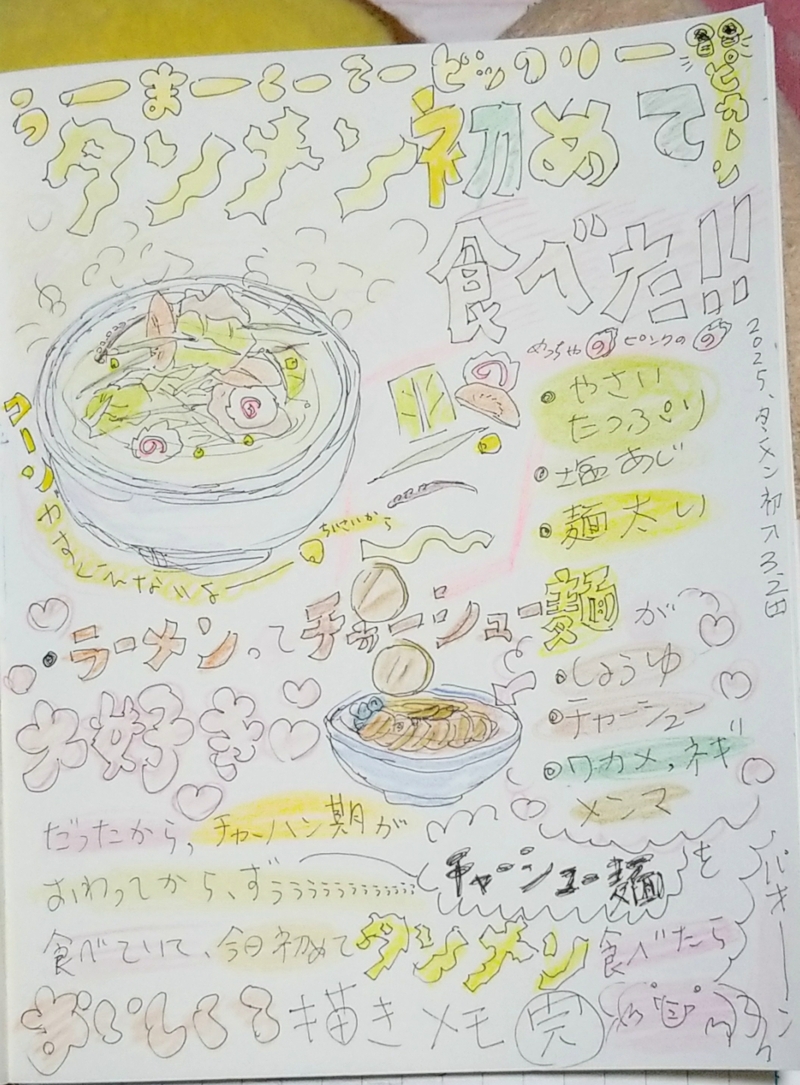 うーまーくーてービックリー
目ンヒカーン
タンメン初めて
食べた!!
めっちゃの ピンクの の
やさい
たっぷり
塩あじ
麺太い
2025、タンメン初
コーンがおじゃんないよ
ちいさいから
ラーメンってチャーシュー麺が
大好き
しょうゆ
チャーシュー
ワカメ、ネギ
メンマ
だったから、チャーハン期が
おわってから、ずぅぅぅぅぅぅぅぅぅぅ
チャーシュー麺を
食べていて、今日初めてタンメン食べたら
おいしくて描きメモ 完
バキーン